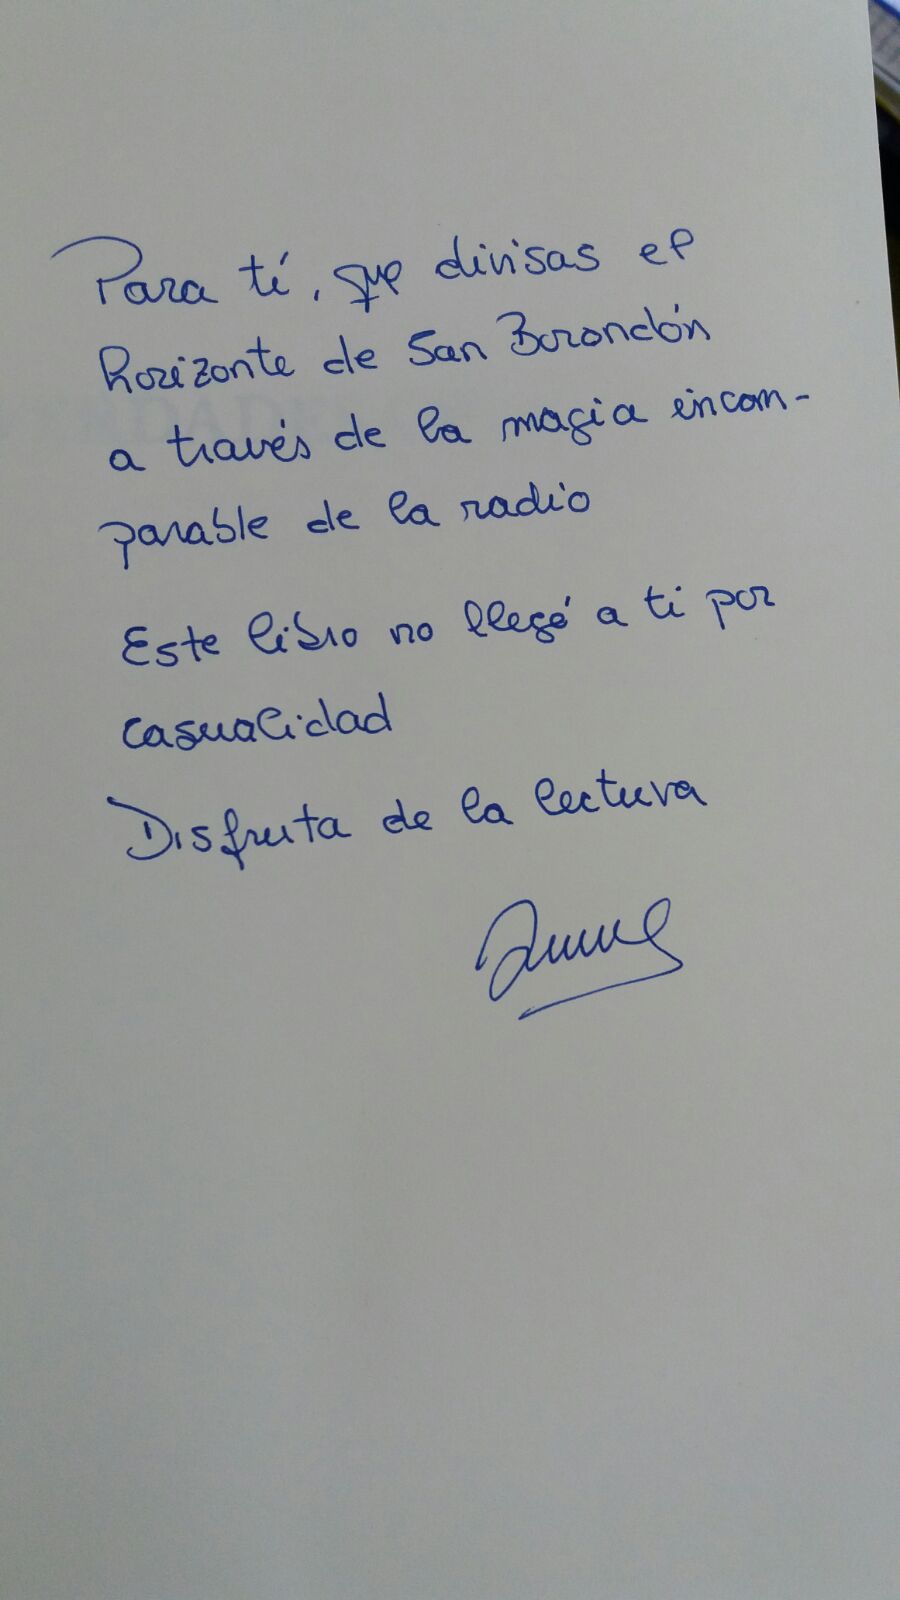 Para tí, que divisas el
horizonte de San Borondón
a través de la magia incom-
parable de la radio
Este libro no llegó a ti por
casualidad
Disfruta de la lectura